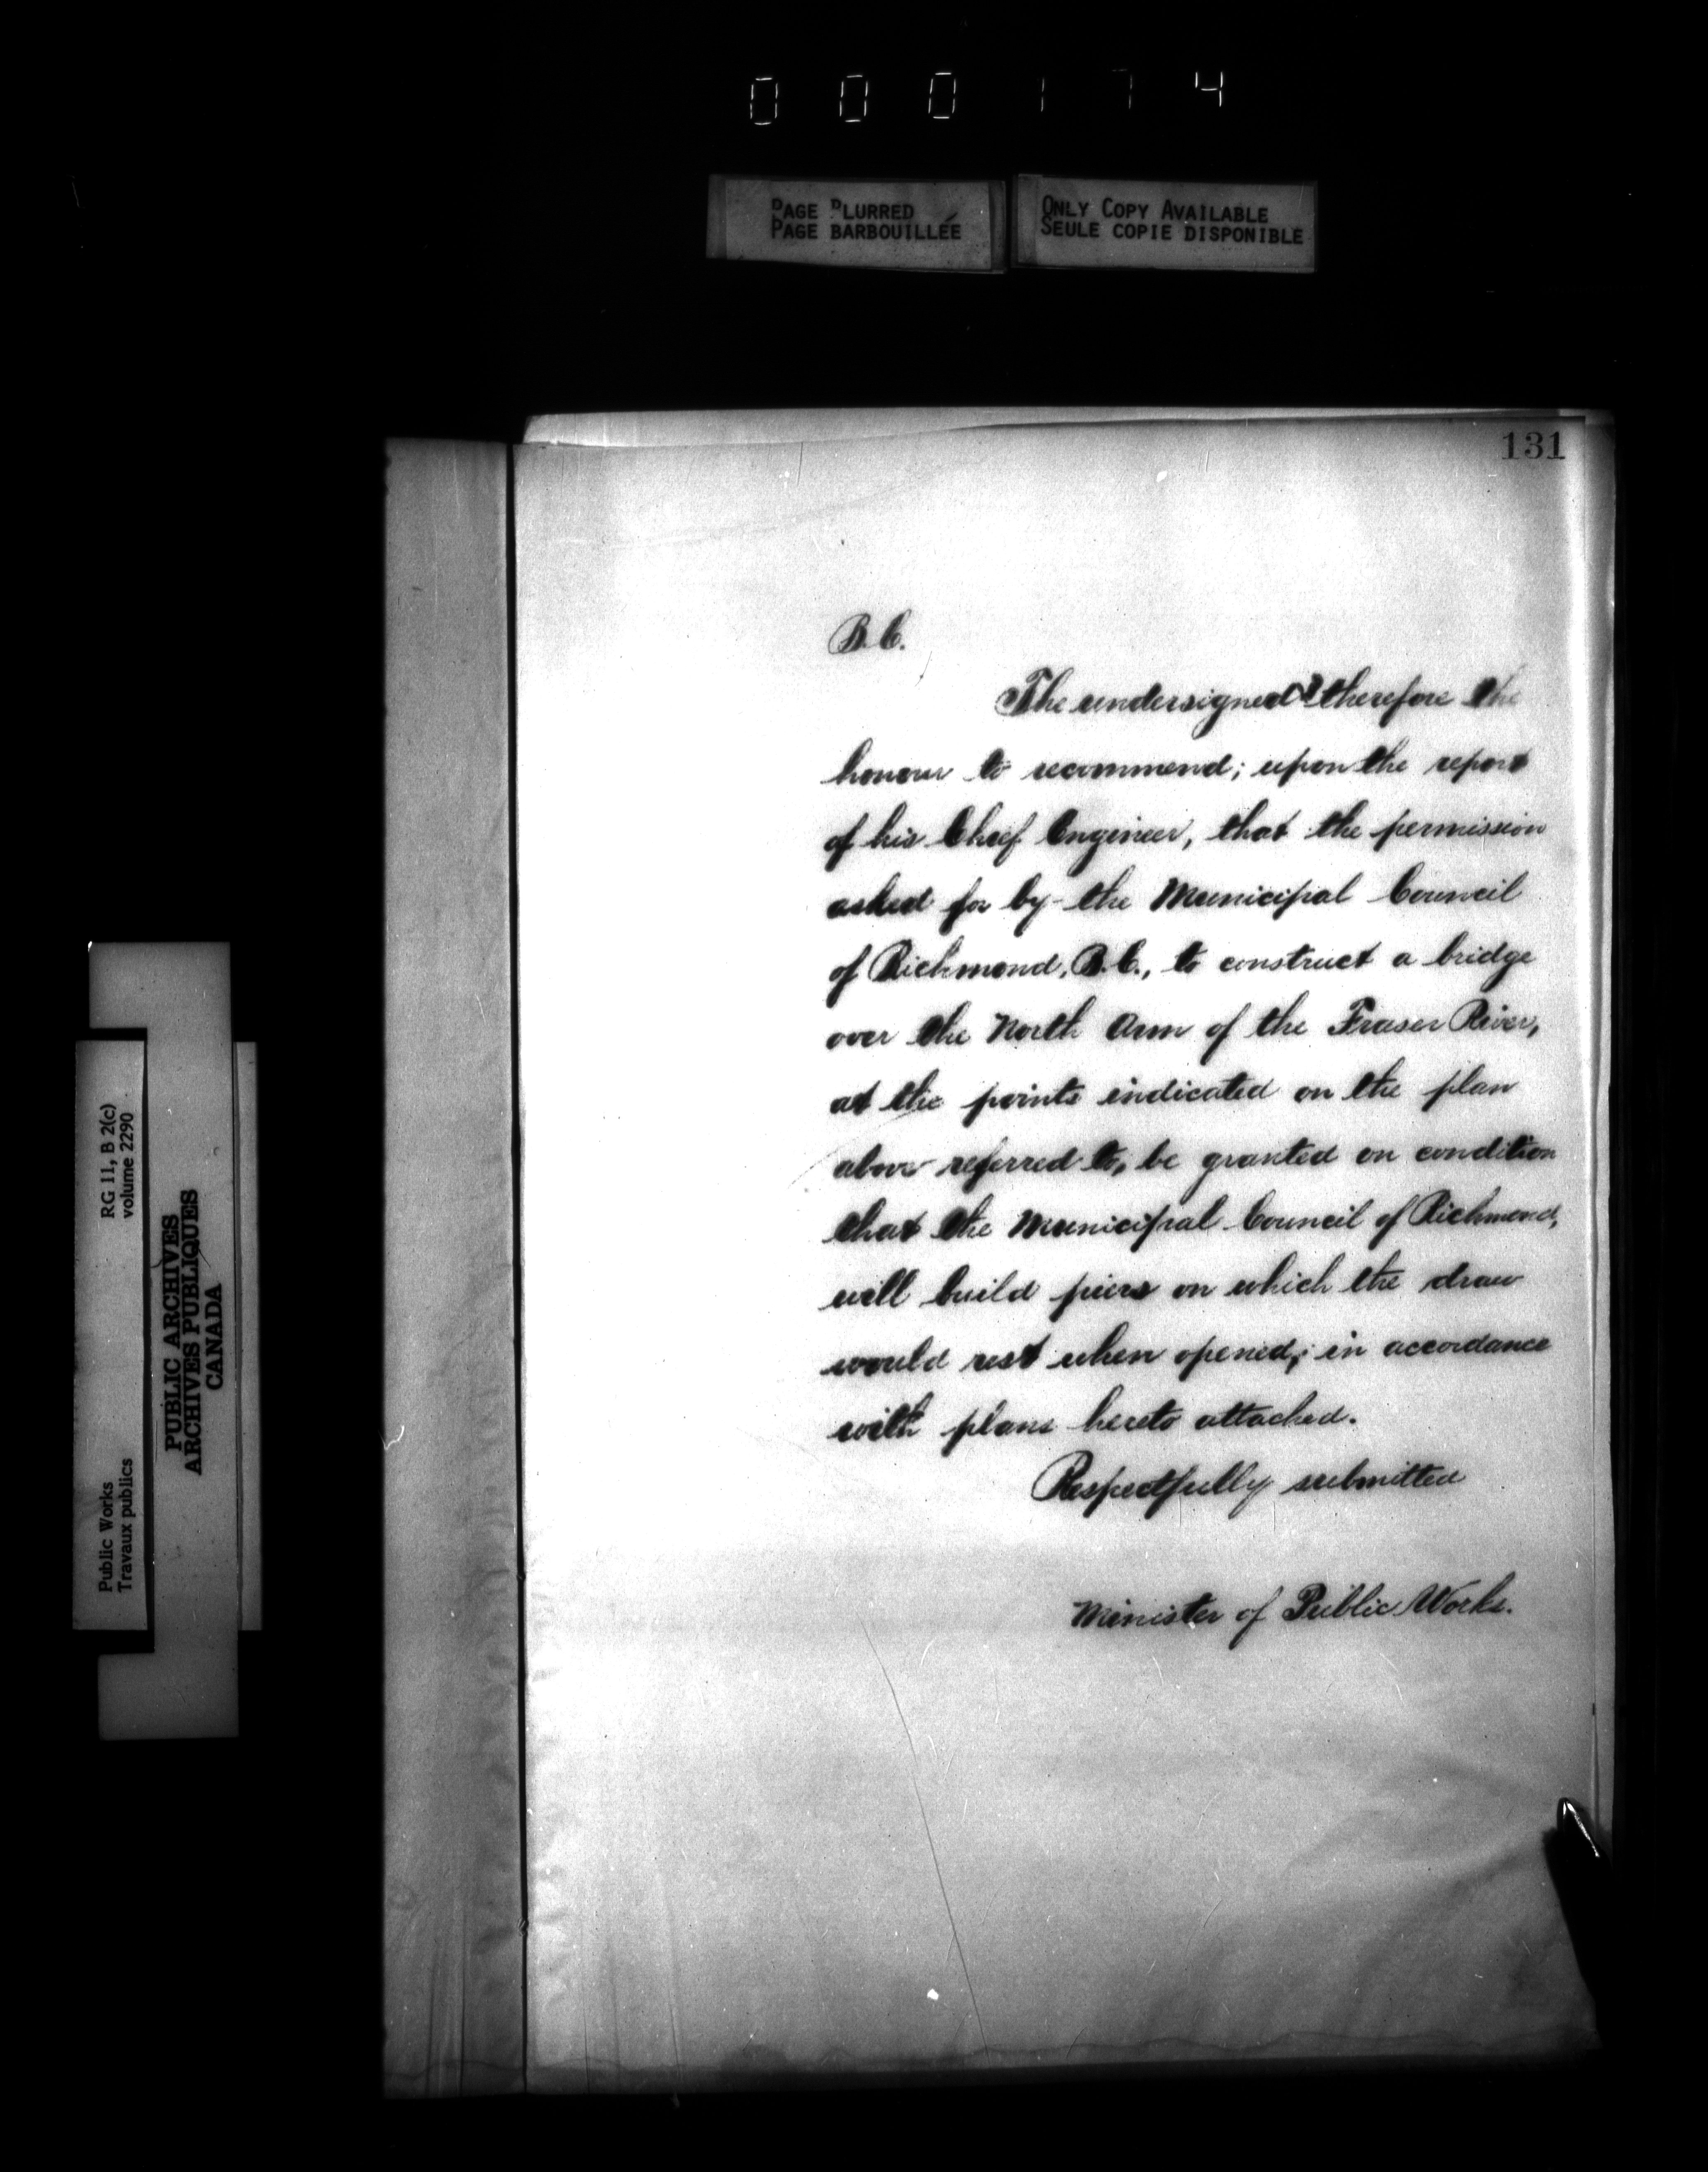 000174
PAGE BLURRED
PAGE BARBOUILLÉE
ONLY COPY AVAILABLE
SEULE COPIE DISPONIBLE
131
B.C.
The undersigned therefore the
honour to recommend; upon the report
of his Chief Engineer, that the permission
asked for by the Municipal Council
of Richmond, B.C., to construct a bridge
over the North Arm of the Fraser River,
at the points indicated on the plan
above referred to, be granted on condition
that the Municipal Council of Richmond,
will build piers on which the draw
would rest when opened; in accordance
with plans hereto attached.
Respectfully submitted
Minister of Public Works.
RG 11, B 2(c)
volume 2290
Public Works
Travaux publics
PUBLIC ARCHIVES
ARCHIVES PUBLIQUES
CANADA